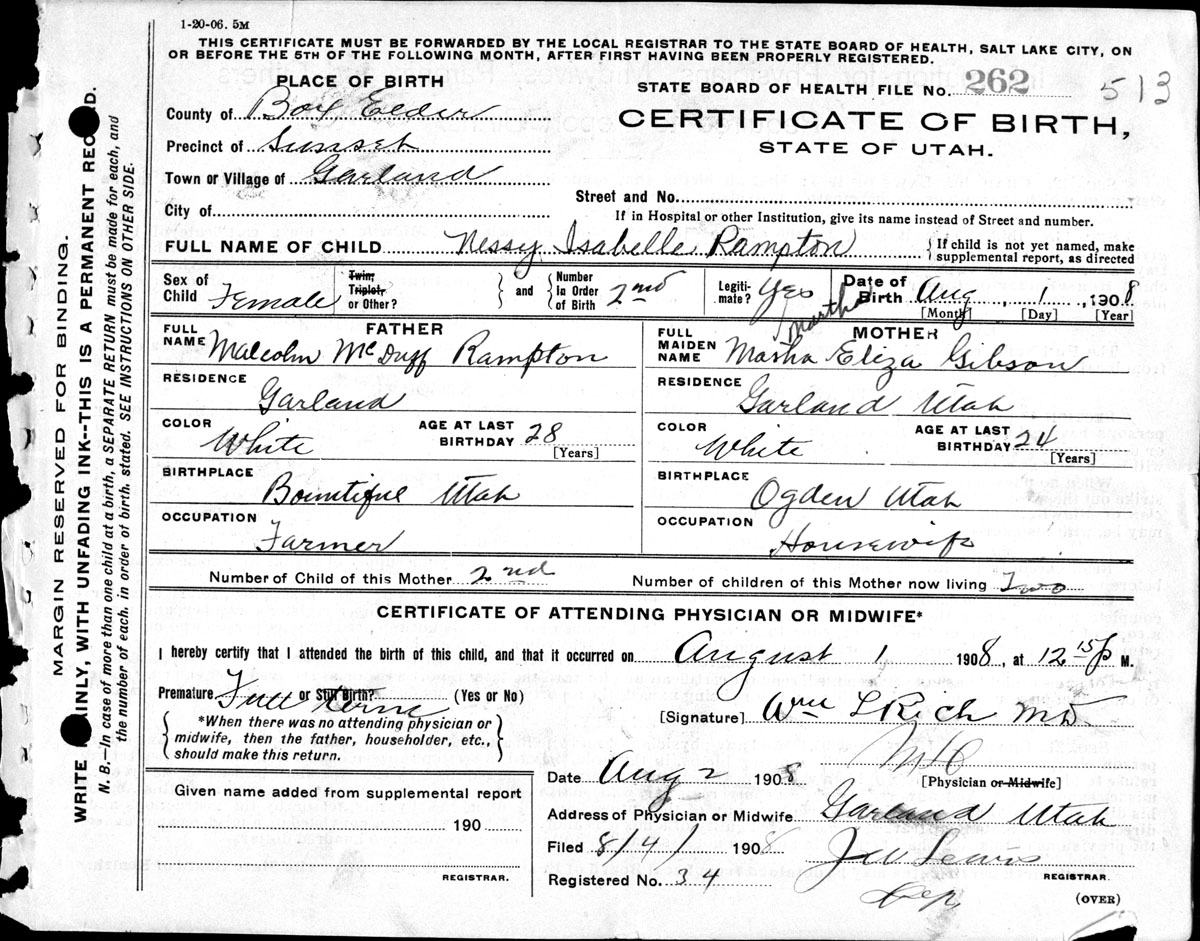 1-20-06. 5M
THIS CERTIFICATE MUST BE FORWARDED BY THE LOCAL REGISTRAR TO THE STATE BOARD OF HEALTH, SALT LAKE CITY, ON
OR BEFORE THE 5TH OF THE FOLLOWING MONTH, AFTER FIRST HAVING BEEN PROPERLY REGISTERED.
PLACE OF BIRTH
STATE BOARD OF HEALTH FILE No. 262 513
County of Box Elder
CERTIFICATE OF BIRTH,
Precinct of Sunset
STATE OF UTAH.
Town or Village of Garland
Street and No.
City of
If in Hospital or other Institution, give its name instead of Street and number.
FULL NAME OF CHILD Nessy Isabelle Rampton {If child is not yet named, make
supplemental report, as directed
Sex of Child Female Twin, Triplet, or Other? and Number In Order of Birth 2nd Legiti-mate? Yes Date of Birth Aug 1, 1908
[Month] [Day] [Year]
FATHER
FULL NAME Malcolm McDuff Rampton
RESIDENCE
Garland
COLOR White AGE AT LAST BIRTHDAY 28
[Years]
BIRTHPLACE
Bountiful Utah
OCCUPATION
Farmer
MOTHER
Martha
FULL MAIDEN NAME Masha Eliza Gibson
RESIDENCE
Garland Utah
COLOR White AGE AT LAST BIRTHDAY 24
[Years]
BIRTHPLACE
Ogden Utah
OCCUPATION
Housewife
Number of Child of this Mother 2nd Number of children of this Mother now living Two
CERTIFICATE OF ATTENDING PHYSICIAN OR MIDWIFE*
I hereby certify that I attended the birth of this child, and that it occurred on August 1 1908, at 12 15 P M.
Premature Full term or Still Birth? (Yes or No)
{*When there was no attending physician or
midwife, then the father, householder, etc.,
should make this return.}
[Signature] Wm L Rich MD
MD
[Physician or Midwife]
Date Aug 2 1908
Address of Physician or Midwife Garland Utah
Filed 8/4/ 1908 J W Lewis
REGISTRAR.
Registered No. 34 Dep.
(OVER)
Given name added from supplemental report
190
REGISTRAR.
MARGIN RESERVED FOR BINDING.
WRITE INLY, WITH UNFADING INK--THIS IS A PERMANENT REC D.
N. B.—In case of more than one child at a birth, a SEPARATE RETURN must be made for each, and
the number of each. in order of birth. stated. SEE INSTRUCTIONS ON OTHER SIDE.